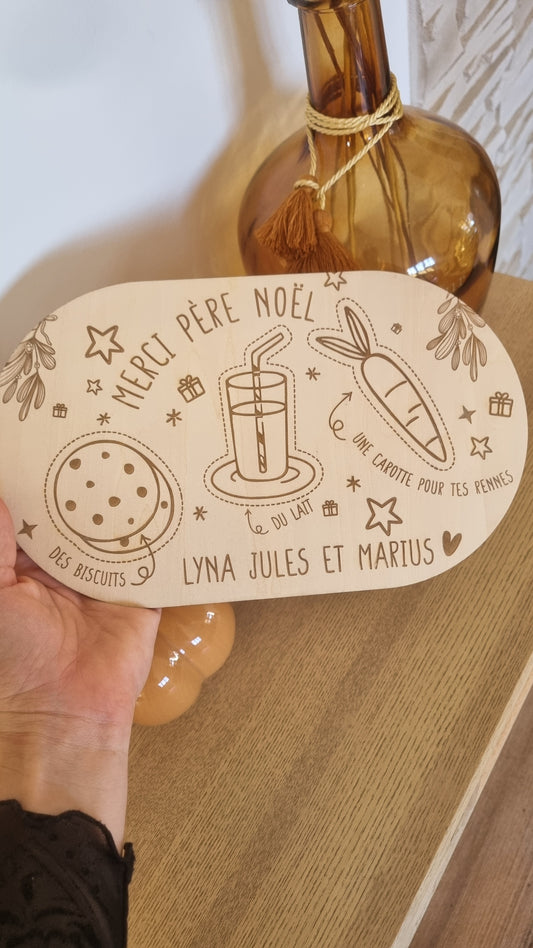 MERCI PÈRE NOËL
UNE CAROTTE POUR TES RENNES
DU LAIT
DES BISCUITS
LYNA JULES ET MARIUS